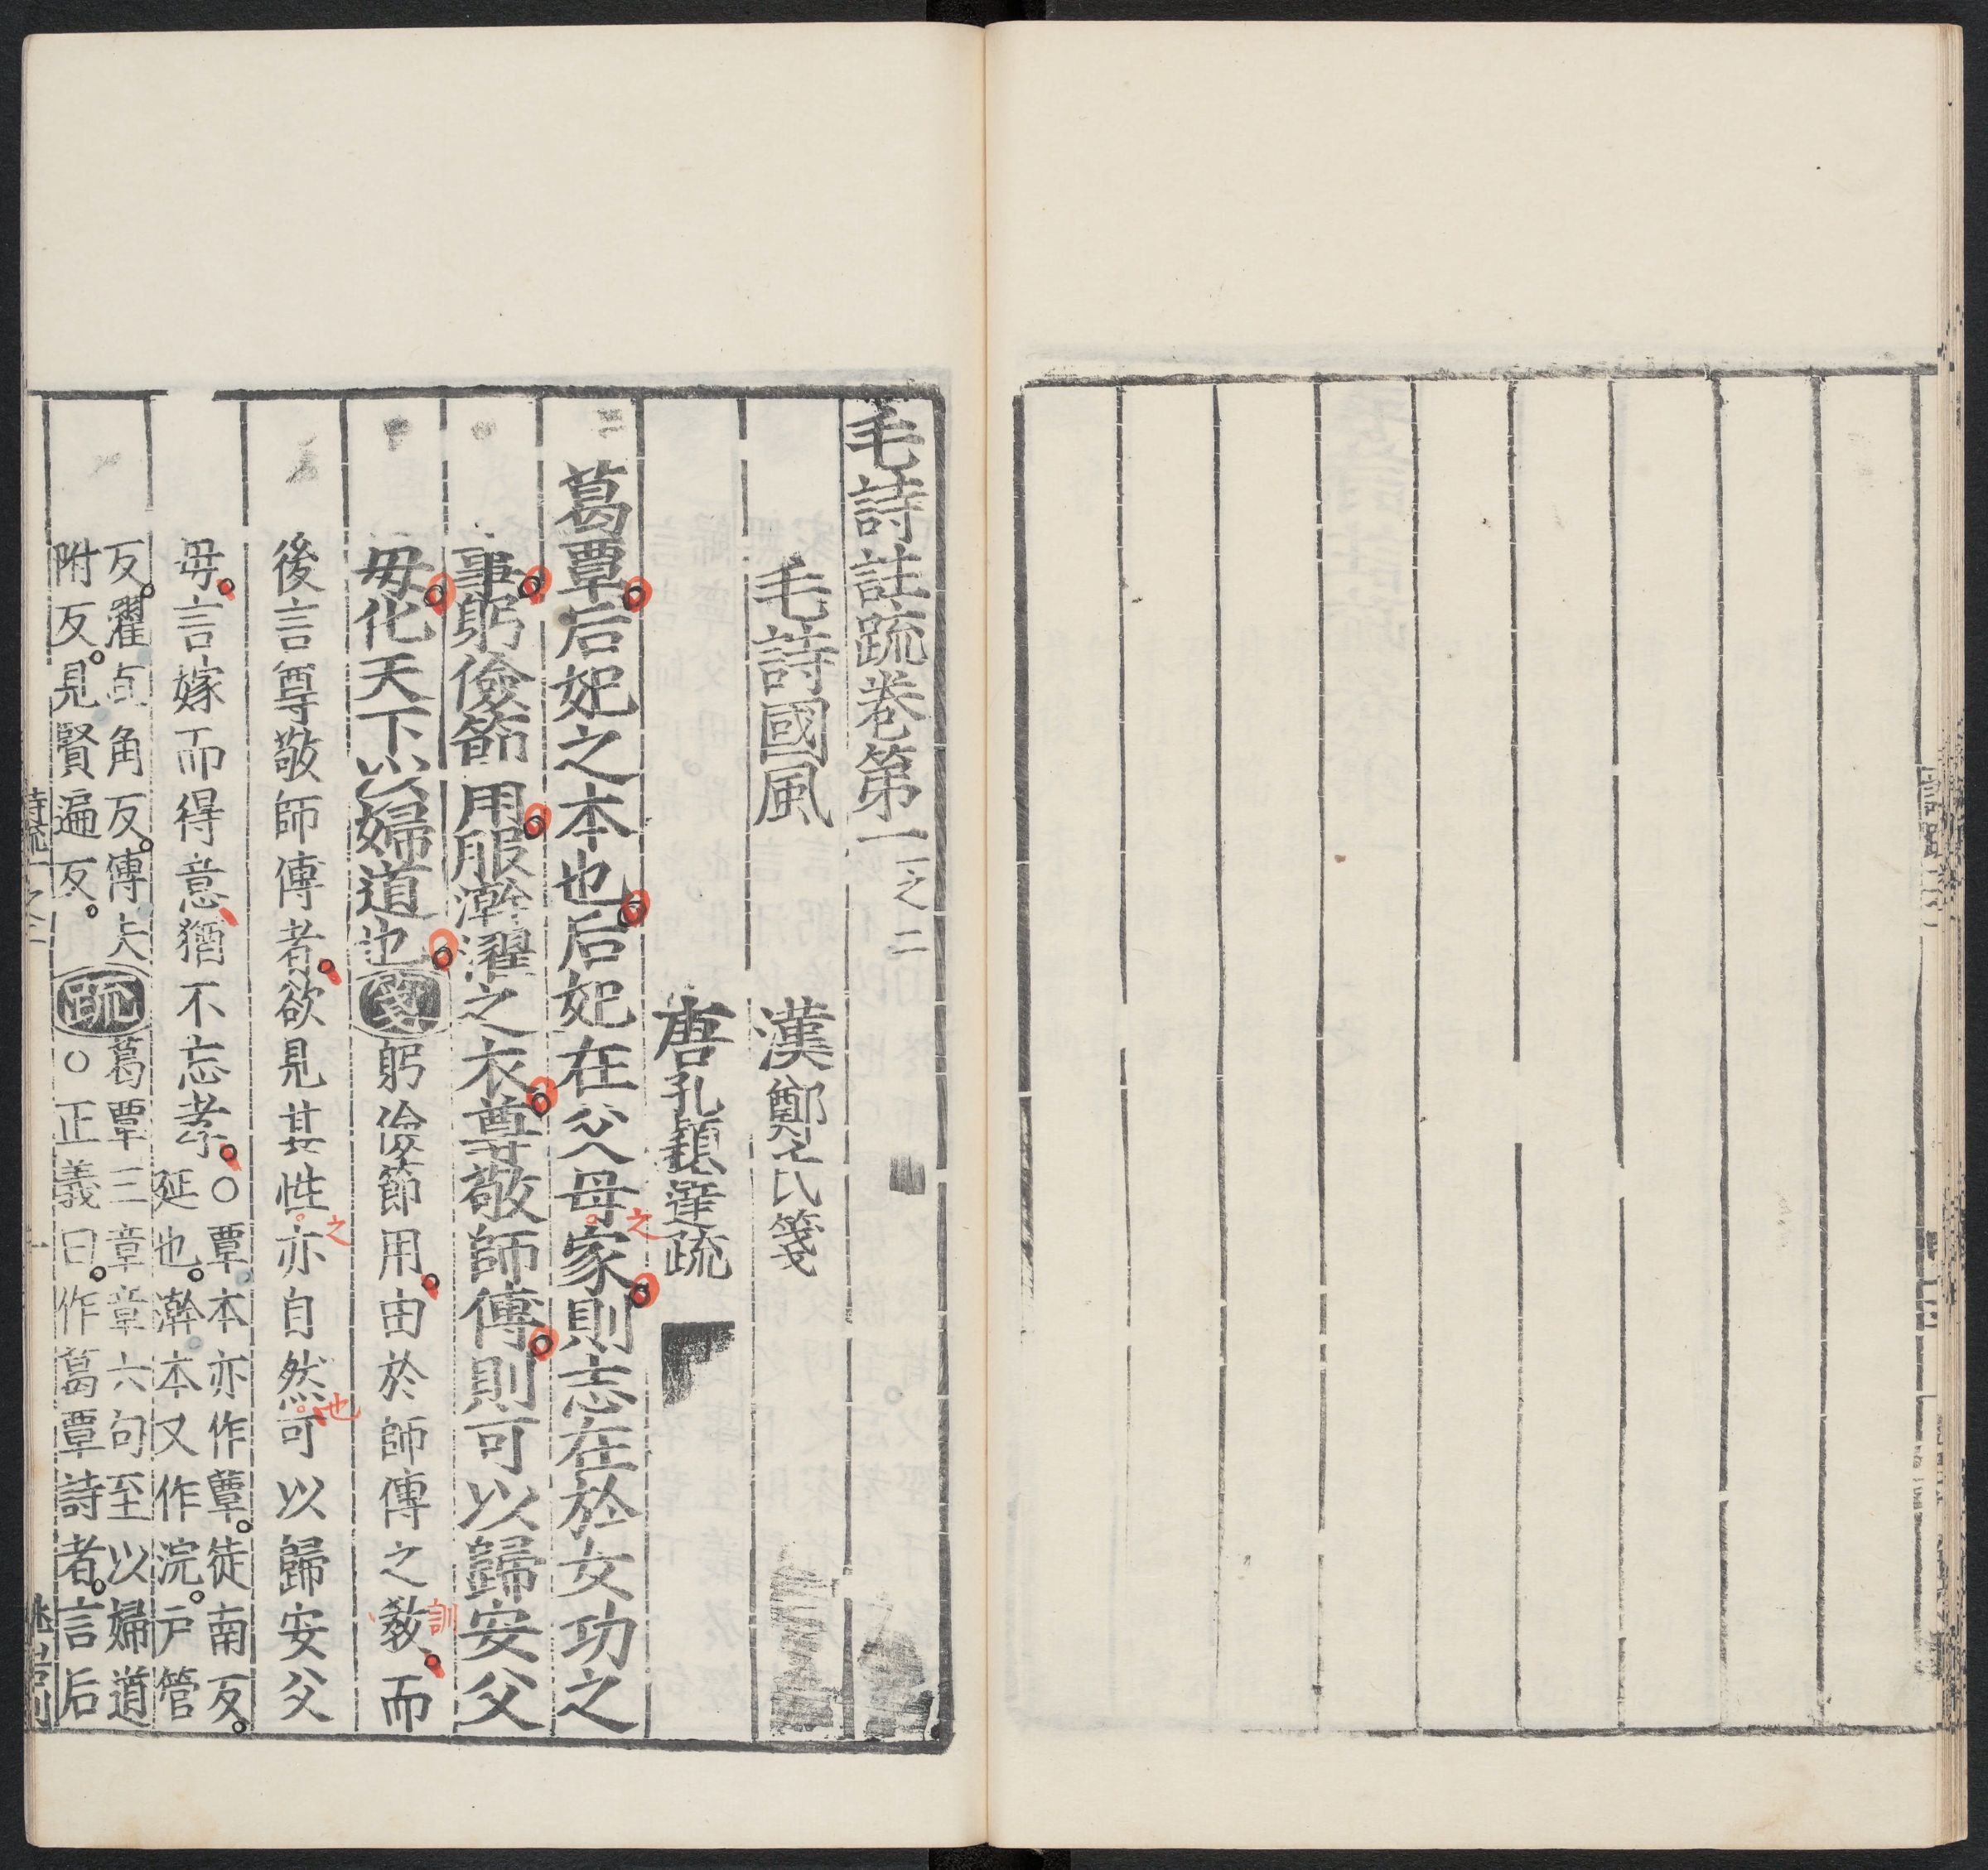 毛詩註疏卷第一 一之二
毛詩國風
漢鄭氏箋
唐孔穎達疏
葛覃后妃之本也后妃在父母家則志在於女功之
之
事躬儉節用服澣濯之衣尊敬師傅則可以歸安父
母化天下以婦道也箋躬儉節用由於師傅之敎而
訓
後言尊敬師傅者欲見其性亦自然可以歸安父
之
也
母言嫁而得意猶不忘孝○覃本亦作蕈徒南反
延也澣本又作浣戸管
反濯直角反傅夫
附反見賢遍反
疏葛覃三章章六句至以婦道
○正義曰作葛覃詩者言后